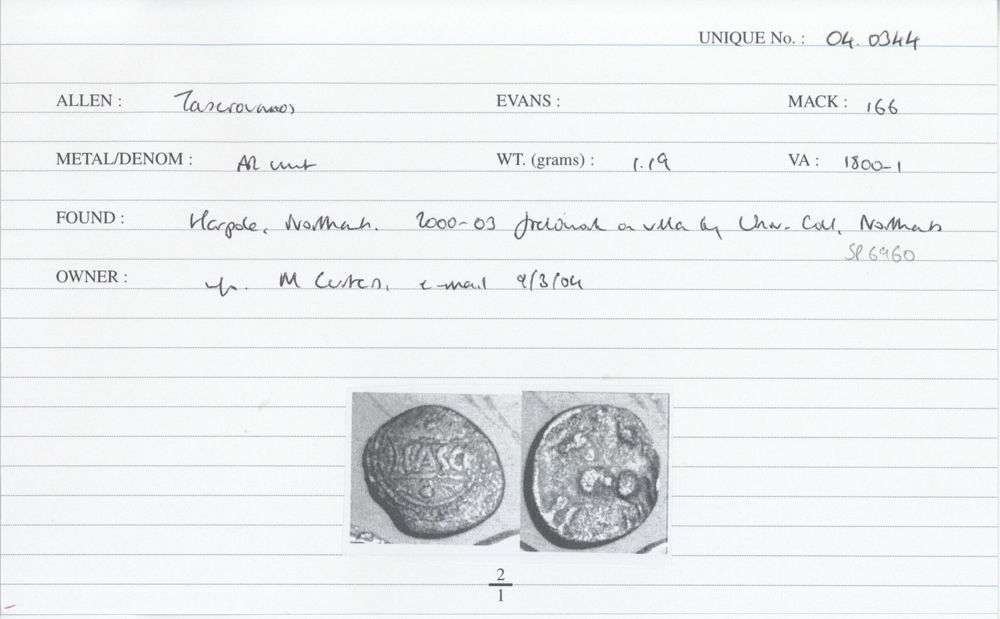 UNIQUE No. : 04. 0344
ALLEN : Tasciovanos EVANS : MACK : 166
METAL/DENOM : AR unit WT. (grams) : 1.19 VA : 1800-1
FOUND : Harpole, Northants. 2000-03 on villa by Univ. Coll. Northants
SP 6960
OWNER : M Curteis, e-mail 9/3/04
TASC
2
1